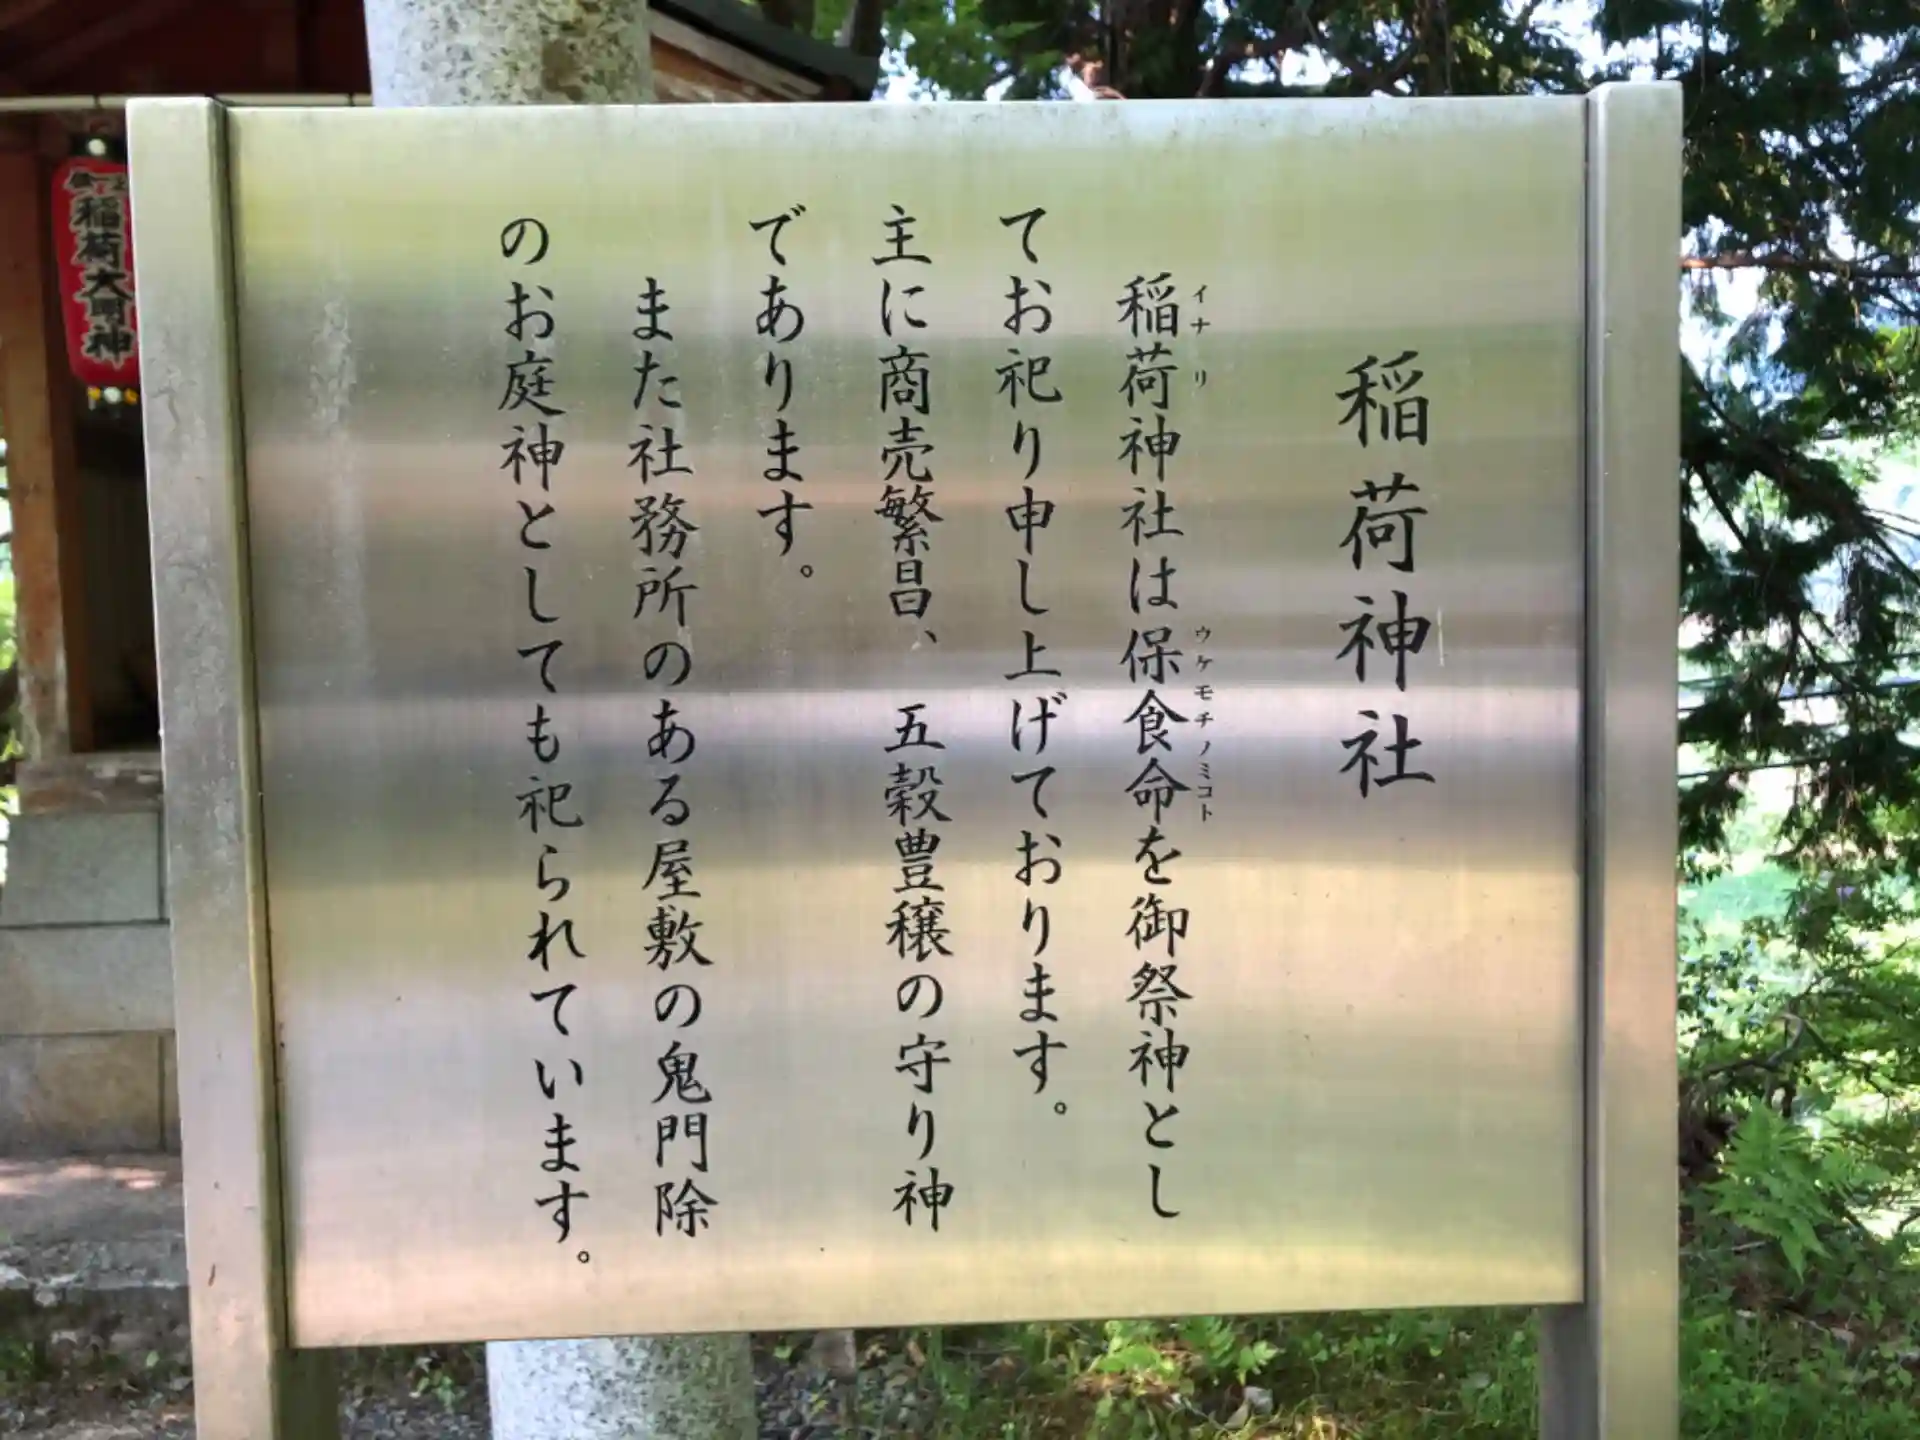 稲荷神社
稲荷神社は保食命を御祭神とし
イナリ
ウケモチノミコト
てお祀り申し上げております。
主に商売繁昌、五穀豊穣の守り神
であります。
また社務所のある屋敷の鬼門除
のお庭神としても祀られています。
稲荷大明神